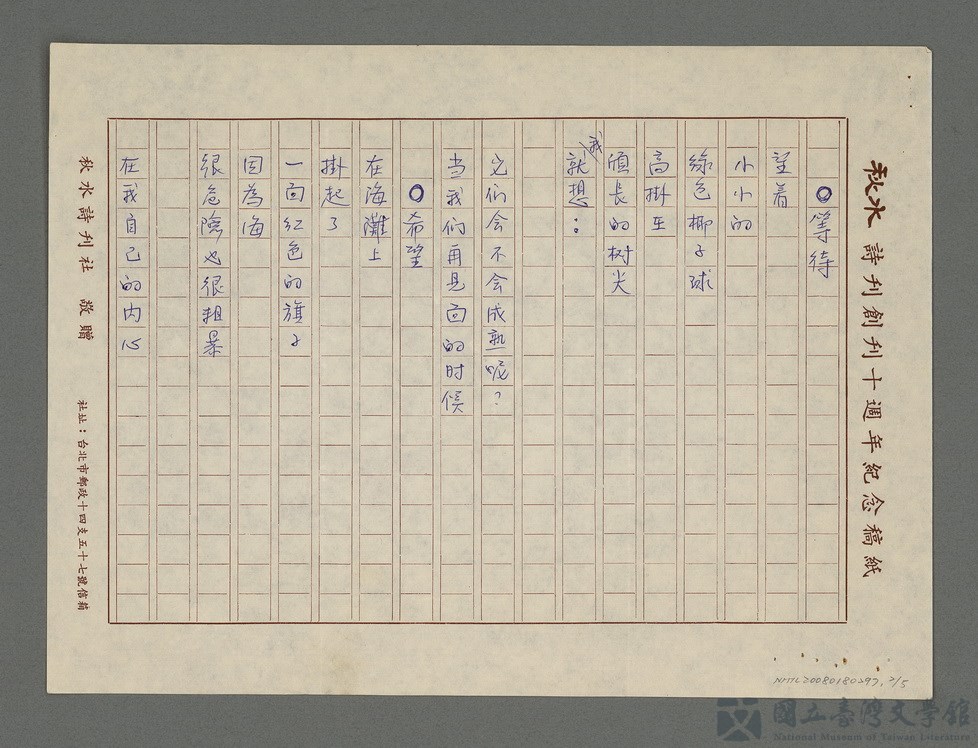 秋水詩刊創刊十週年紀念稿紙
○等待
望着
小小的
綠色椰子球
高掛在
頎長的树尖
我就想：
它们会不会成熟呢？
当我们再见面的时候
○希望
在海灘上
掛起了
一面红色的旗子
因為海
很危險也很粗暴
在我自己的内心
秋水詩刊社 敬贈
社址：台北市郵政十四支五十七號信箱
NMTL20080180297, 2/5
國立臺灣文學館
National Museum of Taiwan Literature